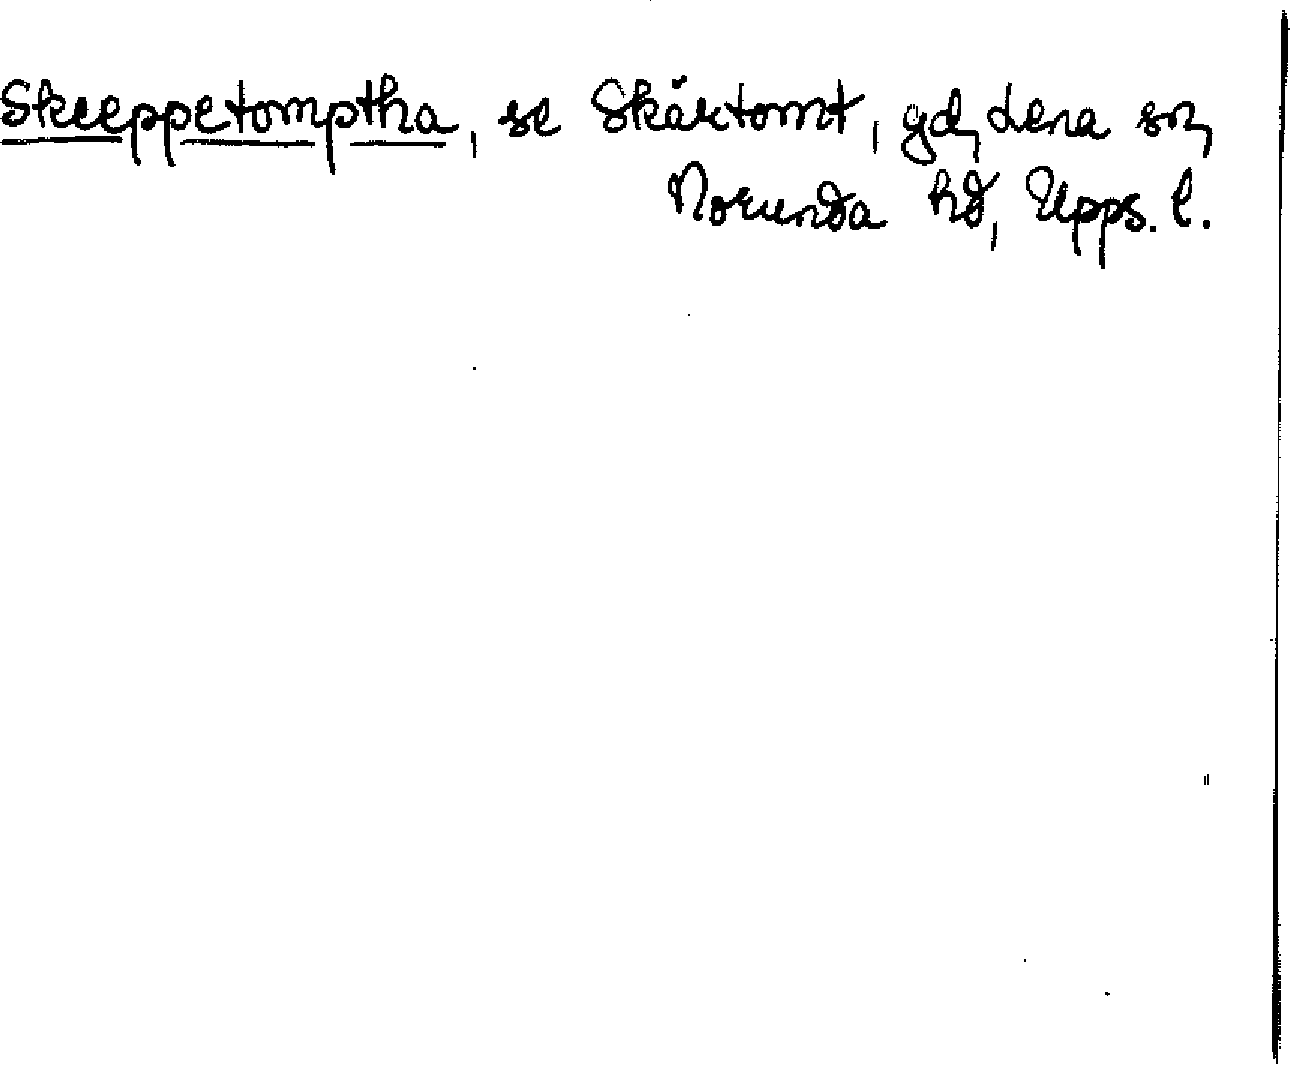 Skreppetomptha, se Skärtomt, gd, Lena sn,
Norunda hd, Upps. l.